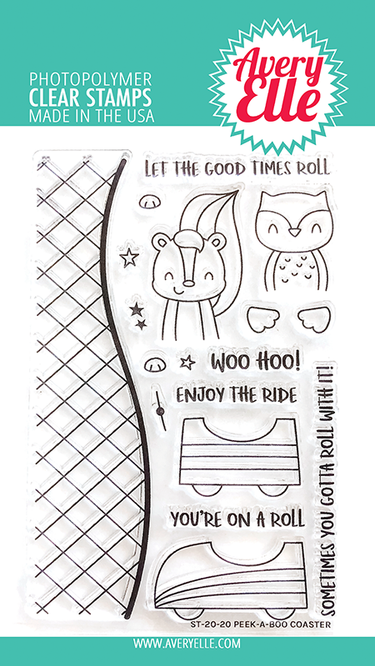 PHOTOPOLYMER
CLEAR STAMPS
MADE IN THE USA
Avery
Elle
LET THE GOOD TIMES ROLL
WOO HOO!
ENJOY THE RIDE
SOMETIMES YOU GOTTA ROLL WITH IT!
YOU'RE ON A ROLL
ST-20-20 PEEK-A-BOO COASTER
WWW.AVERYELLE.COM